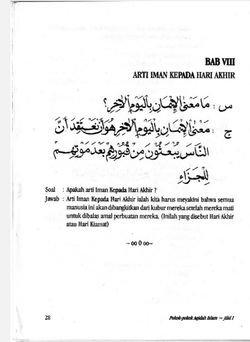 BAB VIII
ARTI IMAN KEPADA HARI AKHIR
س : مَا مَعْنَى الْإِيْمَانِ بِالْيَوْمِ الْآخِرِ؟
ج : مَعْنَى الْإِيْمَانِ بِالْيَوْمِ الْآخِرِ هُوَ أَنْ نَعْتَقِدَ أَنَّ
النَّاسَ يُبْعَثُوْنَ مِنْ قُبُوْرِهِمْ بَعْدَ مَوْتِهِمْ
لِلْجَزَاءِ
Soal : Apakah arti Iman Kepada Hari Akhir ?
Jawab : Arti Iman Kepada Hari Akhir ialah kita harus meyakini bahwa semua
manusia ini akan dibangkitkan dari kubur mereka setelah mereka mati
untuk dibalas amal perbuatan mereka. (Inilah yang disebut Hari Akhir
atau Hari Kiamat)
–oo 0 oo–
28
Pokok-pokok Aqidah Islam — Jilid 1